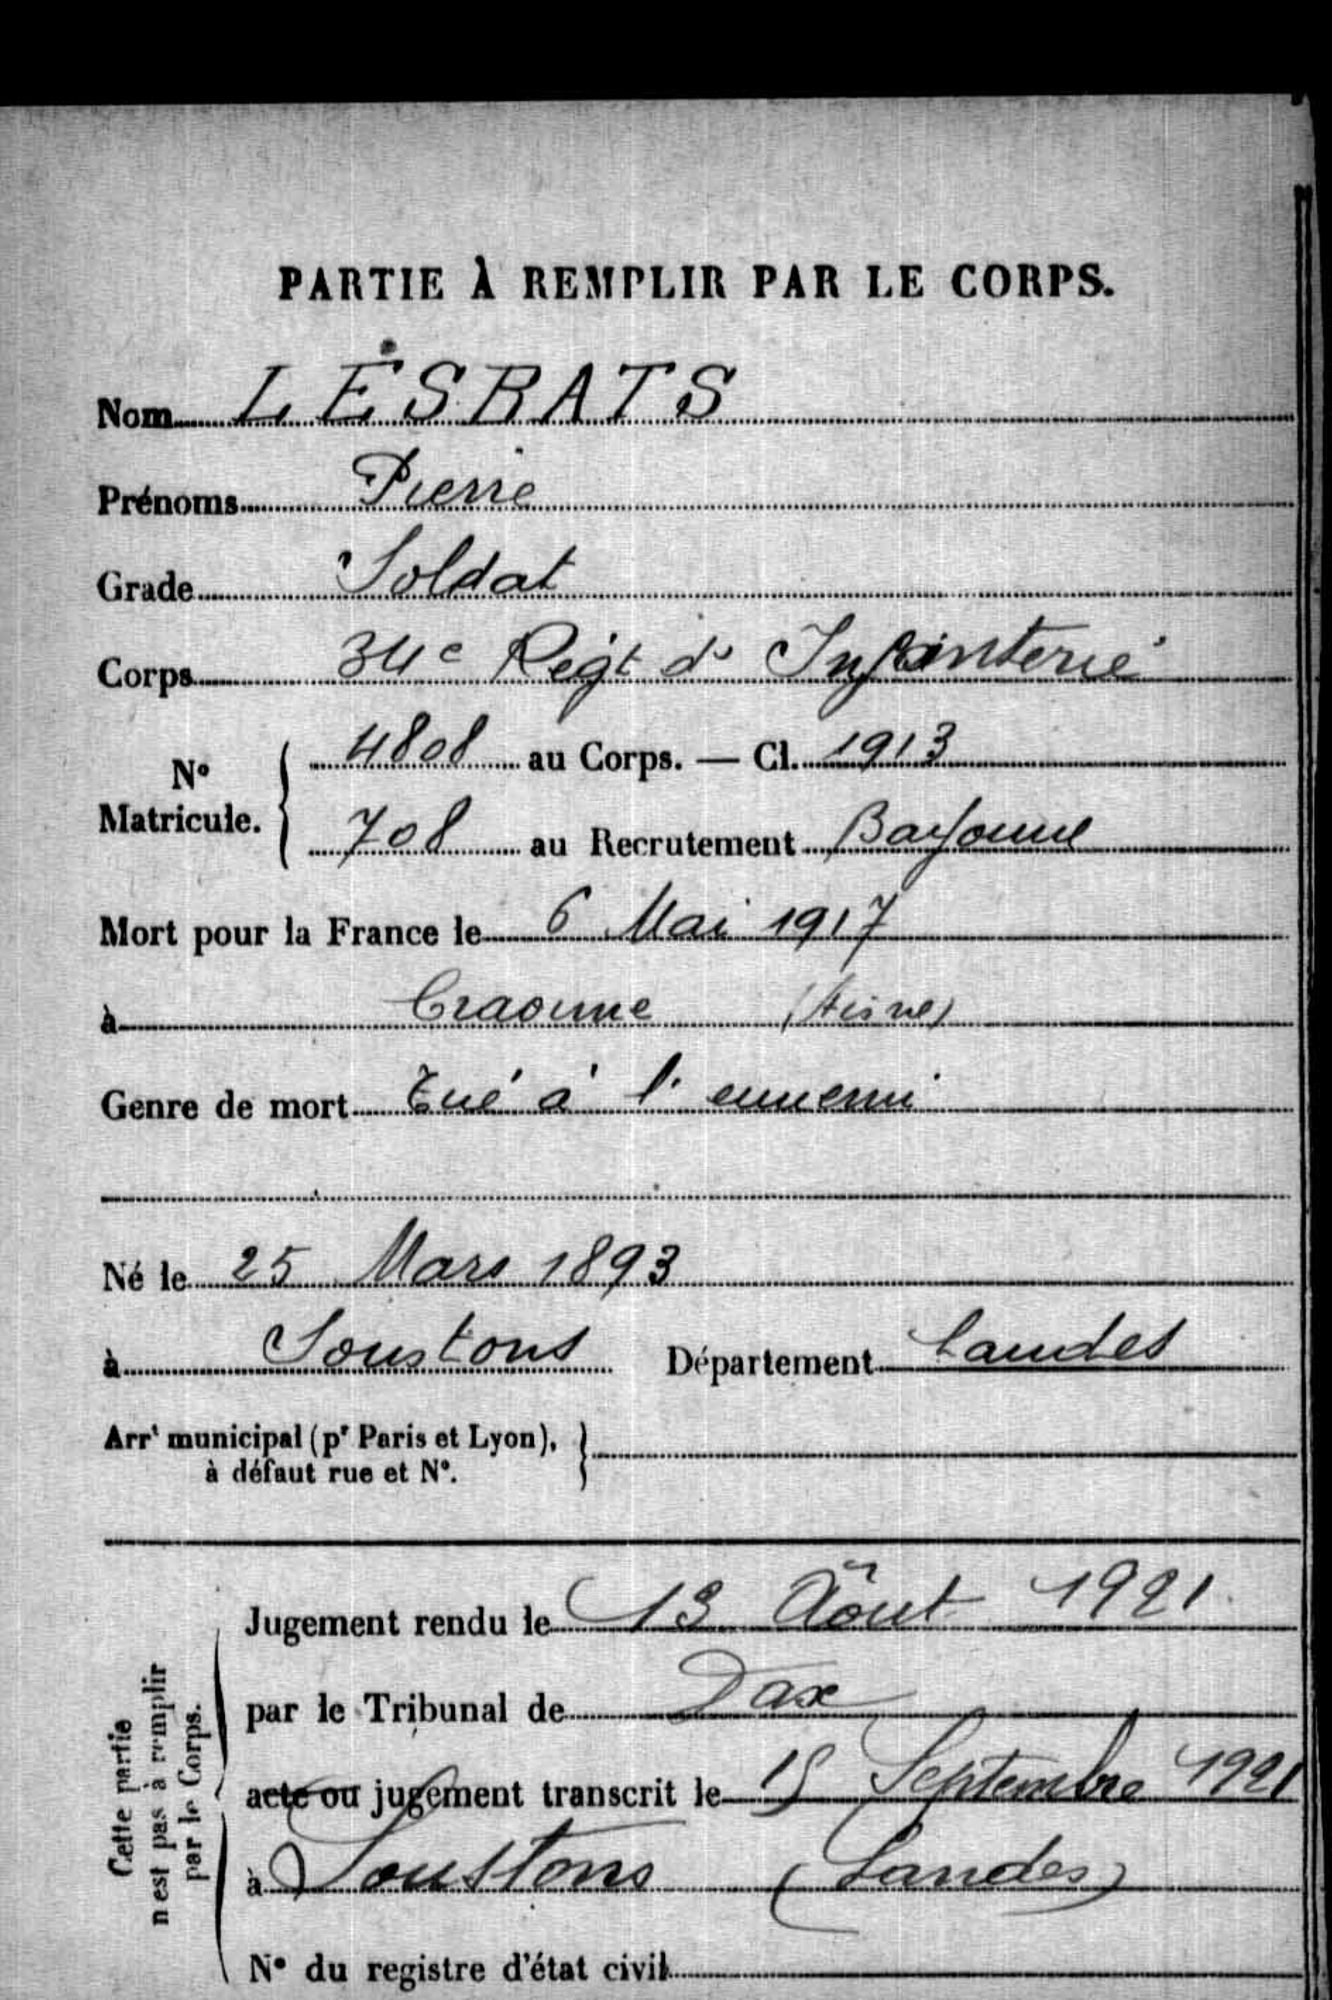 PARTIE À REMPLIR PAR LE CORPS.
Nom LESBATS
Prénoms Pierre
Grade Soldat
Corps 34e Régt d' Infanterie
N° Matricule. { 4808 au Corps. — Cl. 1913
708 au Recrutement Bayonne
Mort pour la France le 6 Mai 1917
à Craonne (Aisne)
Genre de mort Tué à l'ennemi
Né le 25 Mars 1893
à Soustons Département Landes
Arrt municipal (pr Paris et Lyon), }
à défaut rue et N°.
Cette partie
n'est pas à remplir
par le Corps.
Jugement rendu le 13 Août 1921
par le Tribunal de Dax
acte ou jugement transcrit le 15 Septembre 1921
à Soustons (Landes)
N° du registre d'état civil